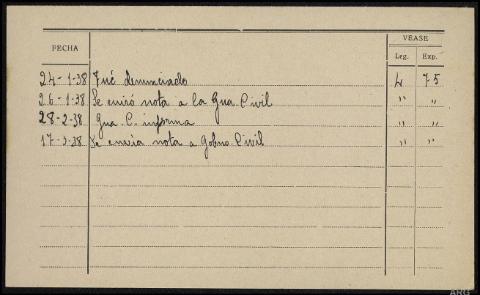 FECHA
VÉASE
Leg. Exp.
24-1-38 Fué denunciado 4 75
26-1-38 Se envió nota a la Gua. Civil " "
28-2-38 Gua. C. informa " "
17-3-38 Se envia nota a Gobno. Civil " "
ARG